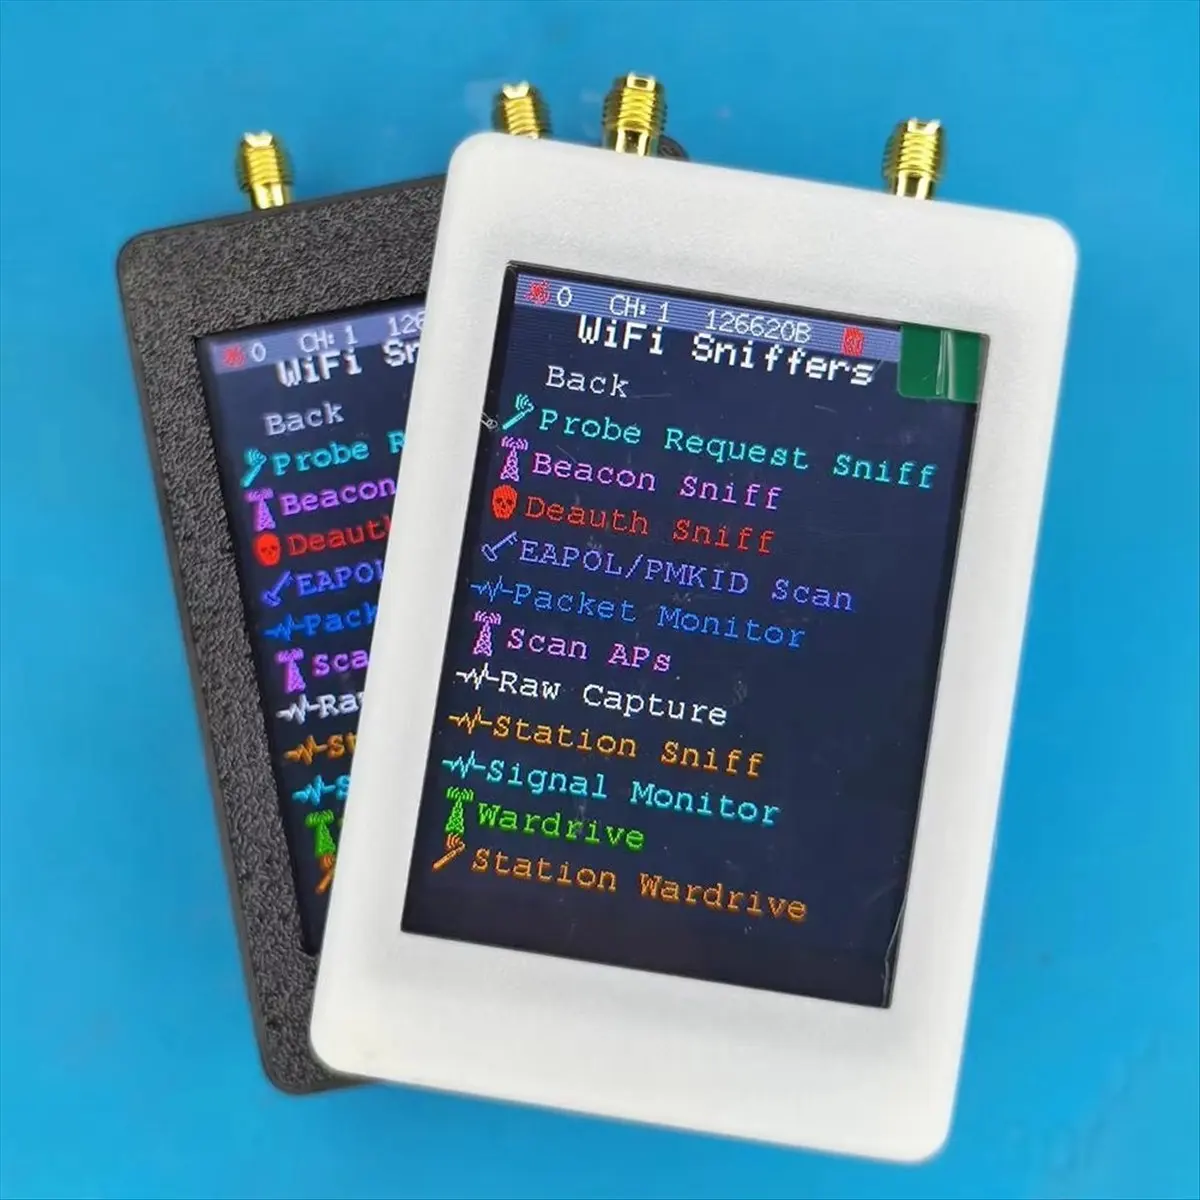 0 CH: 1 126
WiFi Sn
Back
Probe R
Beacon
Deauth
EAPOL
Pack
Sca
Ra
St
S
0 CH: 1 126620B
WiFi Sniffers
Back
Probe Request Sniff
Beacon Sniff
Deauth Sniff
EAPOL/PMKID Scan
Packet Monitor
Scan APs
Raw Capture
Station Sniff
Signal Monitor
Wardrive
Station Wardrive